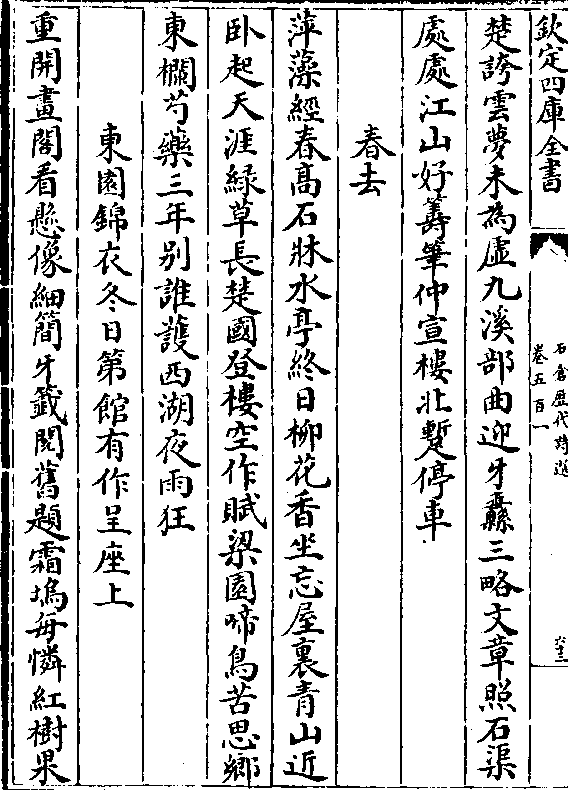 欽定四庫全書
石倉歷代詩選
卷五百一
六十三
楚誇雲夢未為虛九溪部曲迎牙纛三略文章照石渠
處處江山好籌筆仲宣樓北蹔停車
春去
萍藻經春高石牀水亭終日柳花香坐忘屋裏青山近
卧起天涯緑草長楚國登樓空作賦梁園啼鳥苦思鄉
東欄芍藥三年别誰護西湖夜雨狂
東園錦衣冬日第館有作呈座上
重開畫閣看懸像細簡牙籤閲舊題霜塢毎憐紅樹果